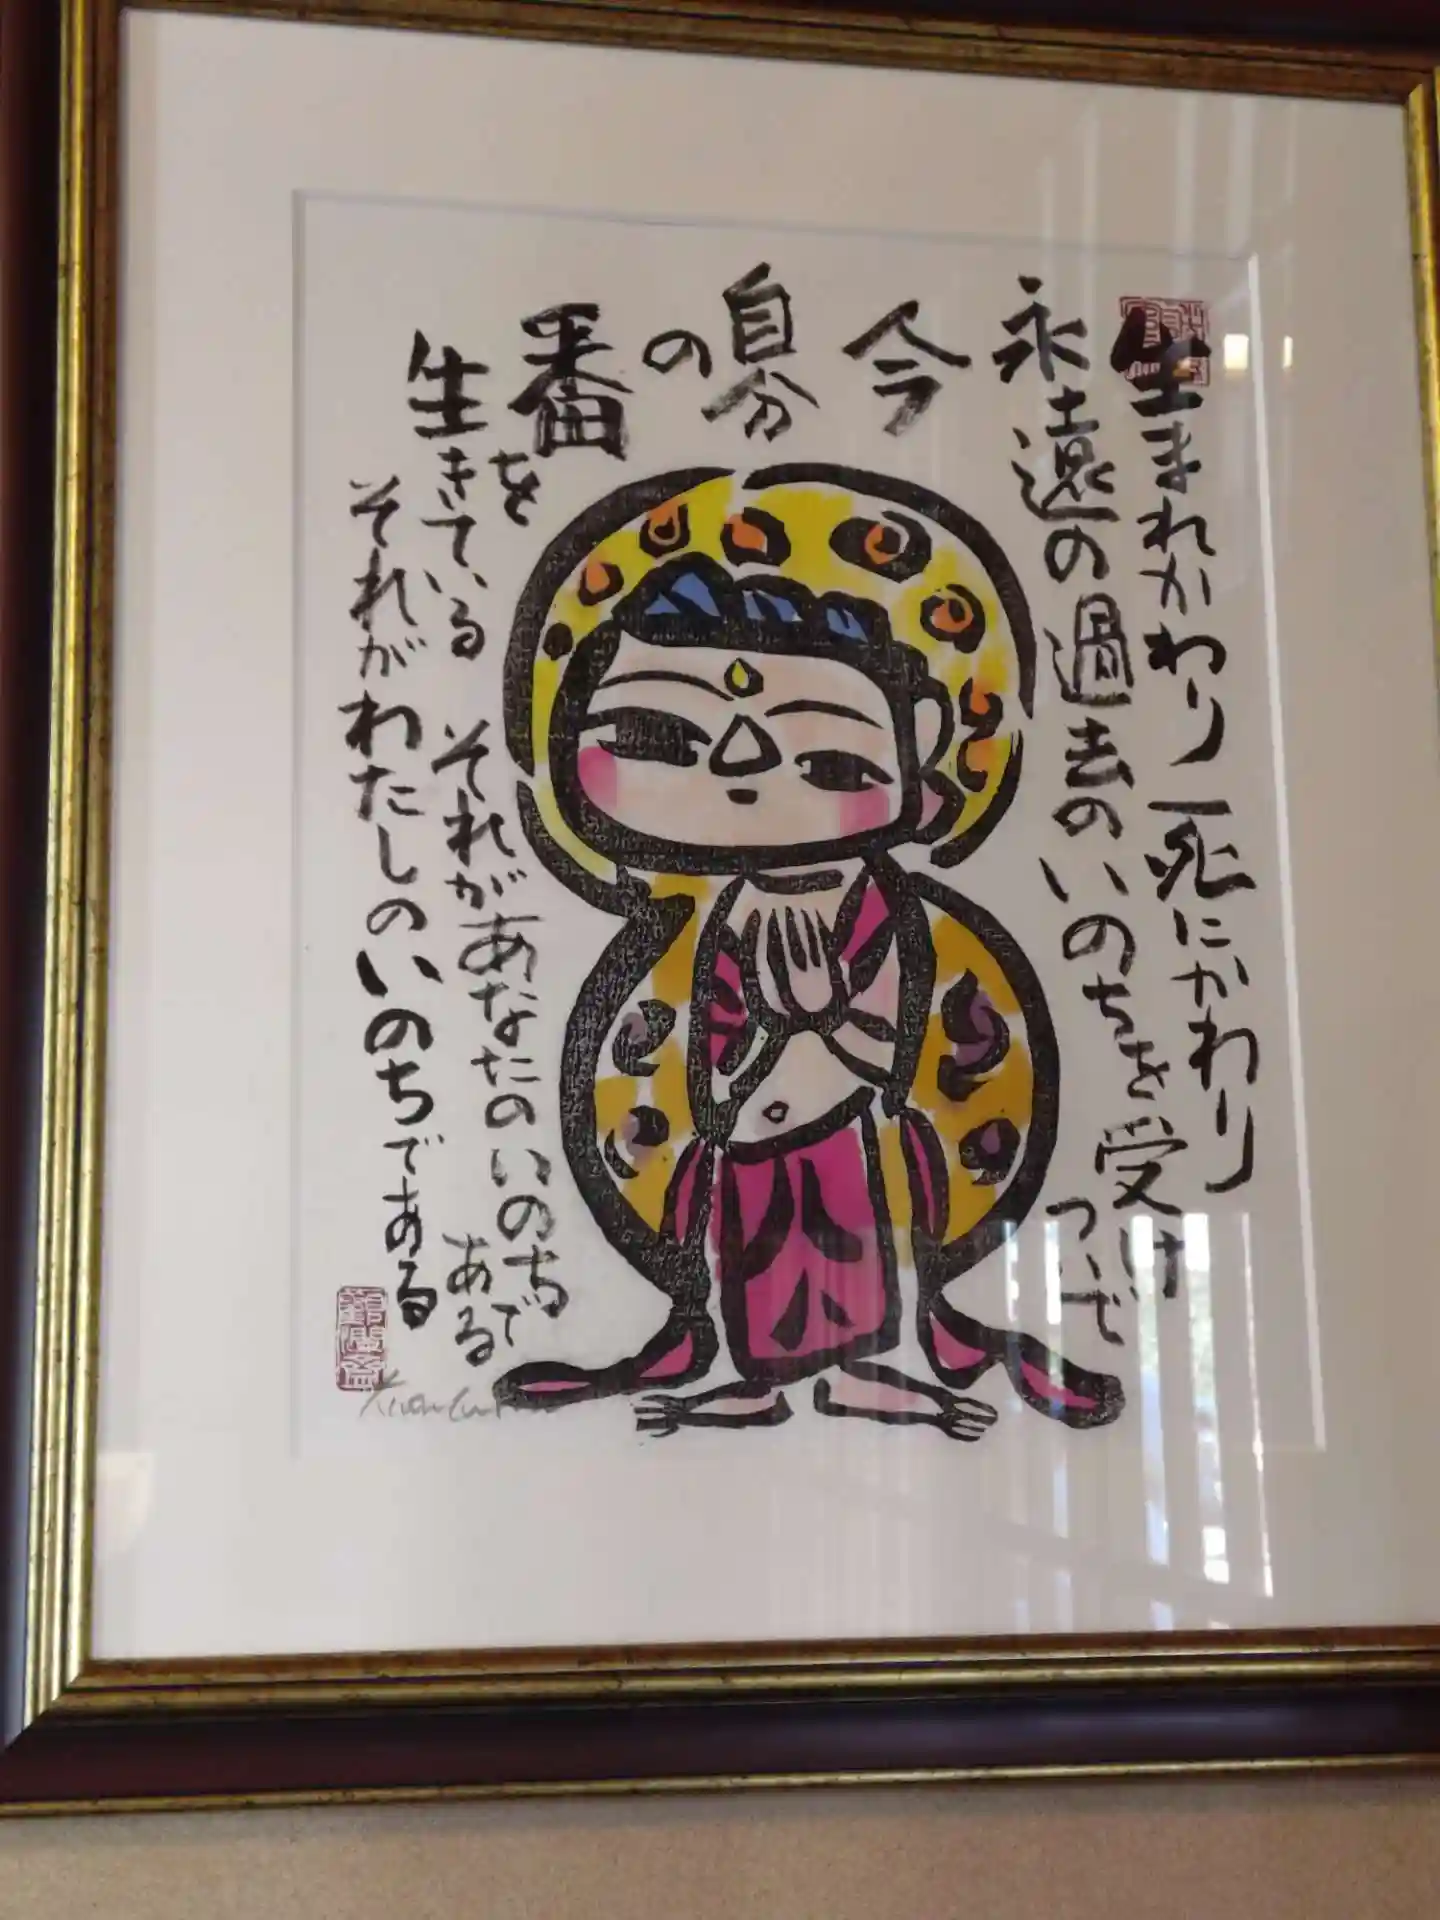 生まれかわり 死にかわり
永遠の過去のいのちを受け
ついで
今
自分
の
番
を
生きている
それがあなたのいのちで
ある
それがわたしのいのちである